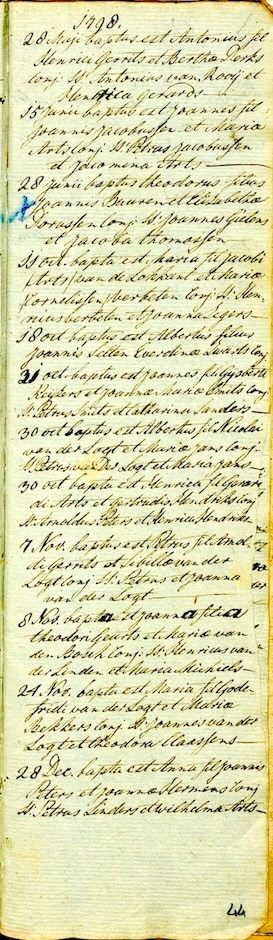 1798.
28 Maji baptus est Antonius fil
Henrici Gerrits et Berthæ Derks
conj. St. Antonius van Rooij et
Henrica Gerards
15 Junii baptus est Joannes fil
Joannis Jacobussen et Maria
Arts conj. St. Petrus Jacobussen
et Jacomina Arts
28 Junii baptus Theodorus filius
Joannis Buuren et Elisabethæ
Dorussen conj. St. Joannes Gielens
et Jacoba Thomassen
11 oct. bapta est Maria fil Jacobi
(Arts) van de Lokkant et Mariæ
Cornelissen / verkelen conj. St. Hen-
ricus verkelen et Joanna Segers
18 oct baptus est Albertus filius
Joannis Selten Everdinæ Swarts conj
21 oct baptus est Joannes fil Gijsberti
Keijsers et Joannæ Mariæ Smits conj
St. Petrus Smits et Catharina Sanders
30 oct baptus est Albertus fil Nicolai
van der Logt et Mariæ Jans conj.
St. Petrus van der Logt et Maria Jans
30 oct bapta est Henrica fil Gerar-
di Arts et Gertrudis Hendriks conj
St. Arnoldus Peters et Henrica Hendriks
7 Nov. baptus est Petrus fil Arnol
di Gerrits et Sibillæ van der
Logt conj St. Petrus et Joanna
van der Logt
8 Nov. bapta est Joanna filia
Theodori Geurts et Mariæ van
den Bosch conj. St. Henricus van
der Linden et Maria Michiels
24 Nov. bapta est Maria fil Gode-
fridi van der Logt et Mariæ
Bekkers conj St Joannes van der
Logt et Theodora Claassens
28 Dec. bapta est Anna fil Joannis
Peters et Joannæ Hermens conj
St. Petrus Linders et Wilhelma Arts
44